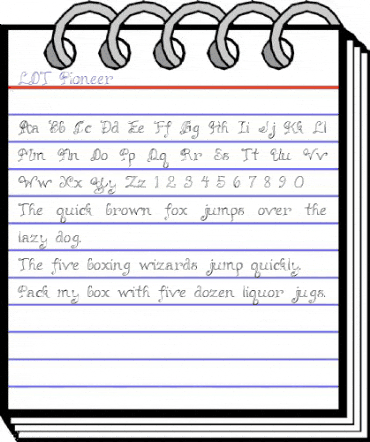 LDT Pioneer
Aa Bb Cc Dd Ee Ff Gg Hh Ii Jj Kk Ll
Mm Nn Oo Pp Qq Rr Ss Tt Uu Vv
Ww Xx Yy Zz 1 2 3 4 5 6 7 8 9 0
The quick brown fox jumps over the
lazy dog.
The five boxing wizards jump quickly.
Pack my box with five dozen liquor jugs.